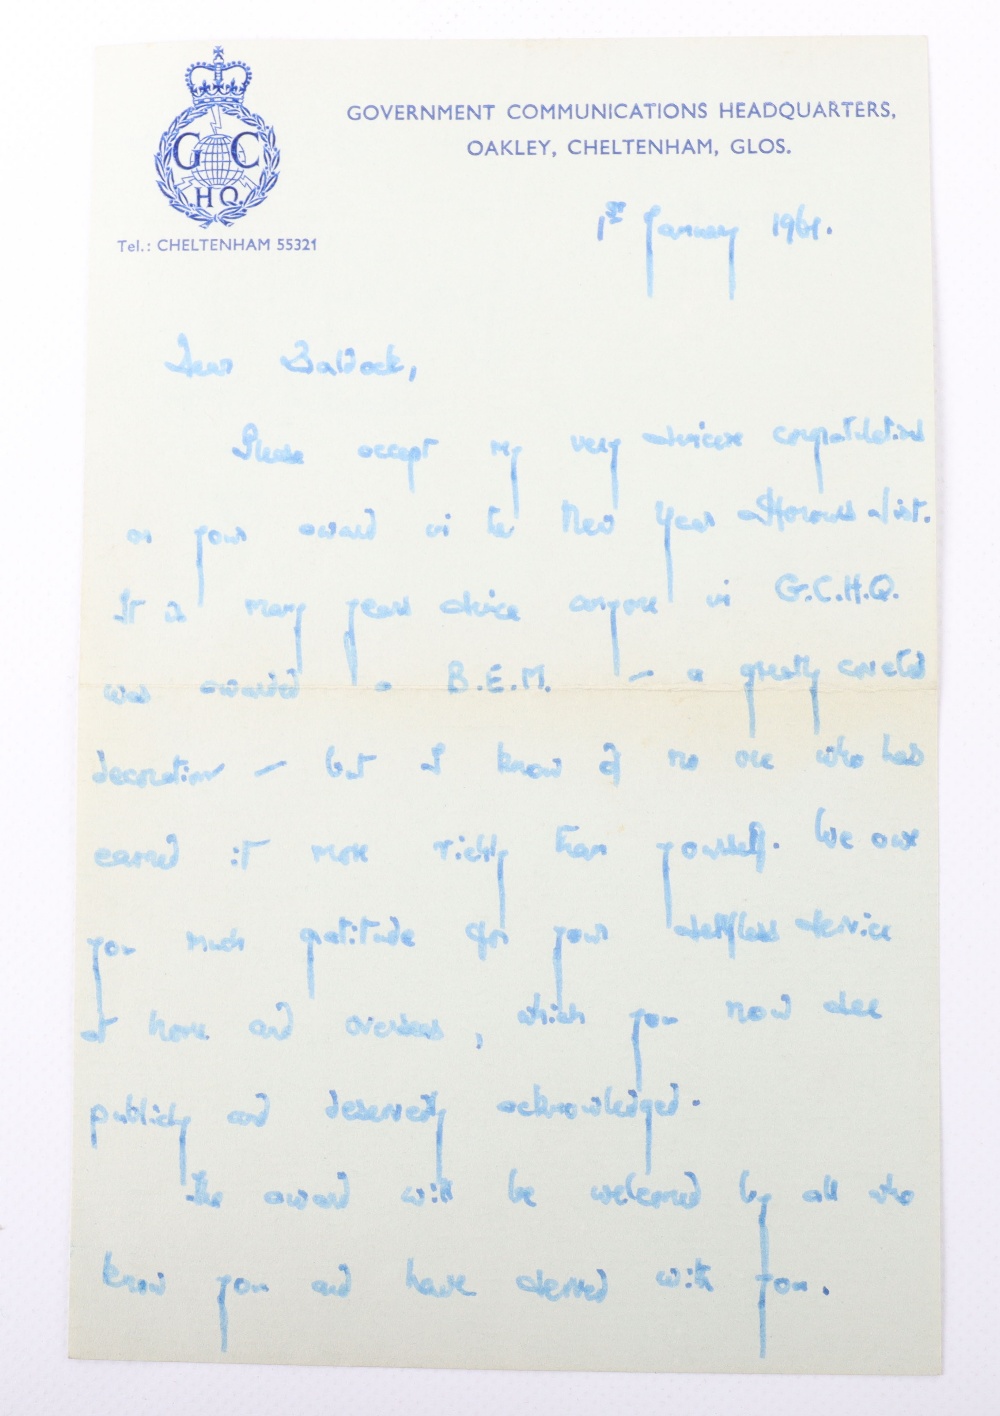 G C
H Q
GOVERNMENT COMMUNICATIONS HEADQUARTERS,
OAKLEY, CHELTENHAM, GLOS.
Tel.: CHELTENHAM 55321
1st January 1961.
Dear Baldock,
Please accept my very sincere congratulations
on your award in the New Year Honours List.
It is many years since anyone in G.C.H.Q.
was awarded a B.E.M. — a greatly coveted
decoration — but I know of no one who has
earned it more richly than yourself. We owe
you much gratitude for your selfless service
at home and overseas, which you now see
publicly and deservedly acknowledged.
The award will be welcomed by all who
know you and have served with you.